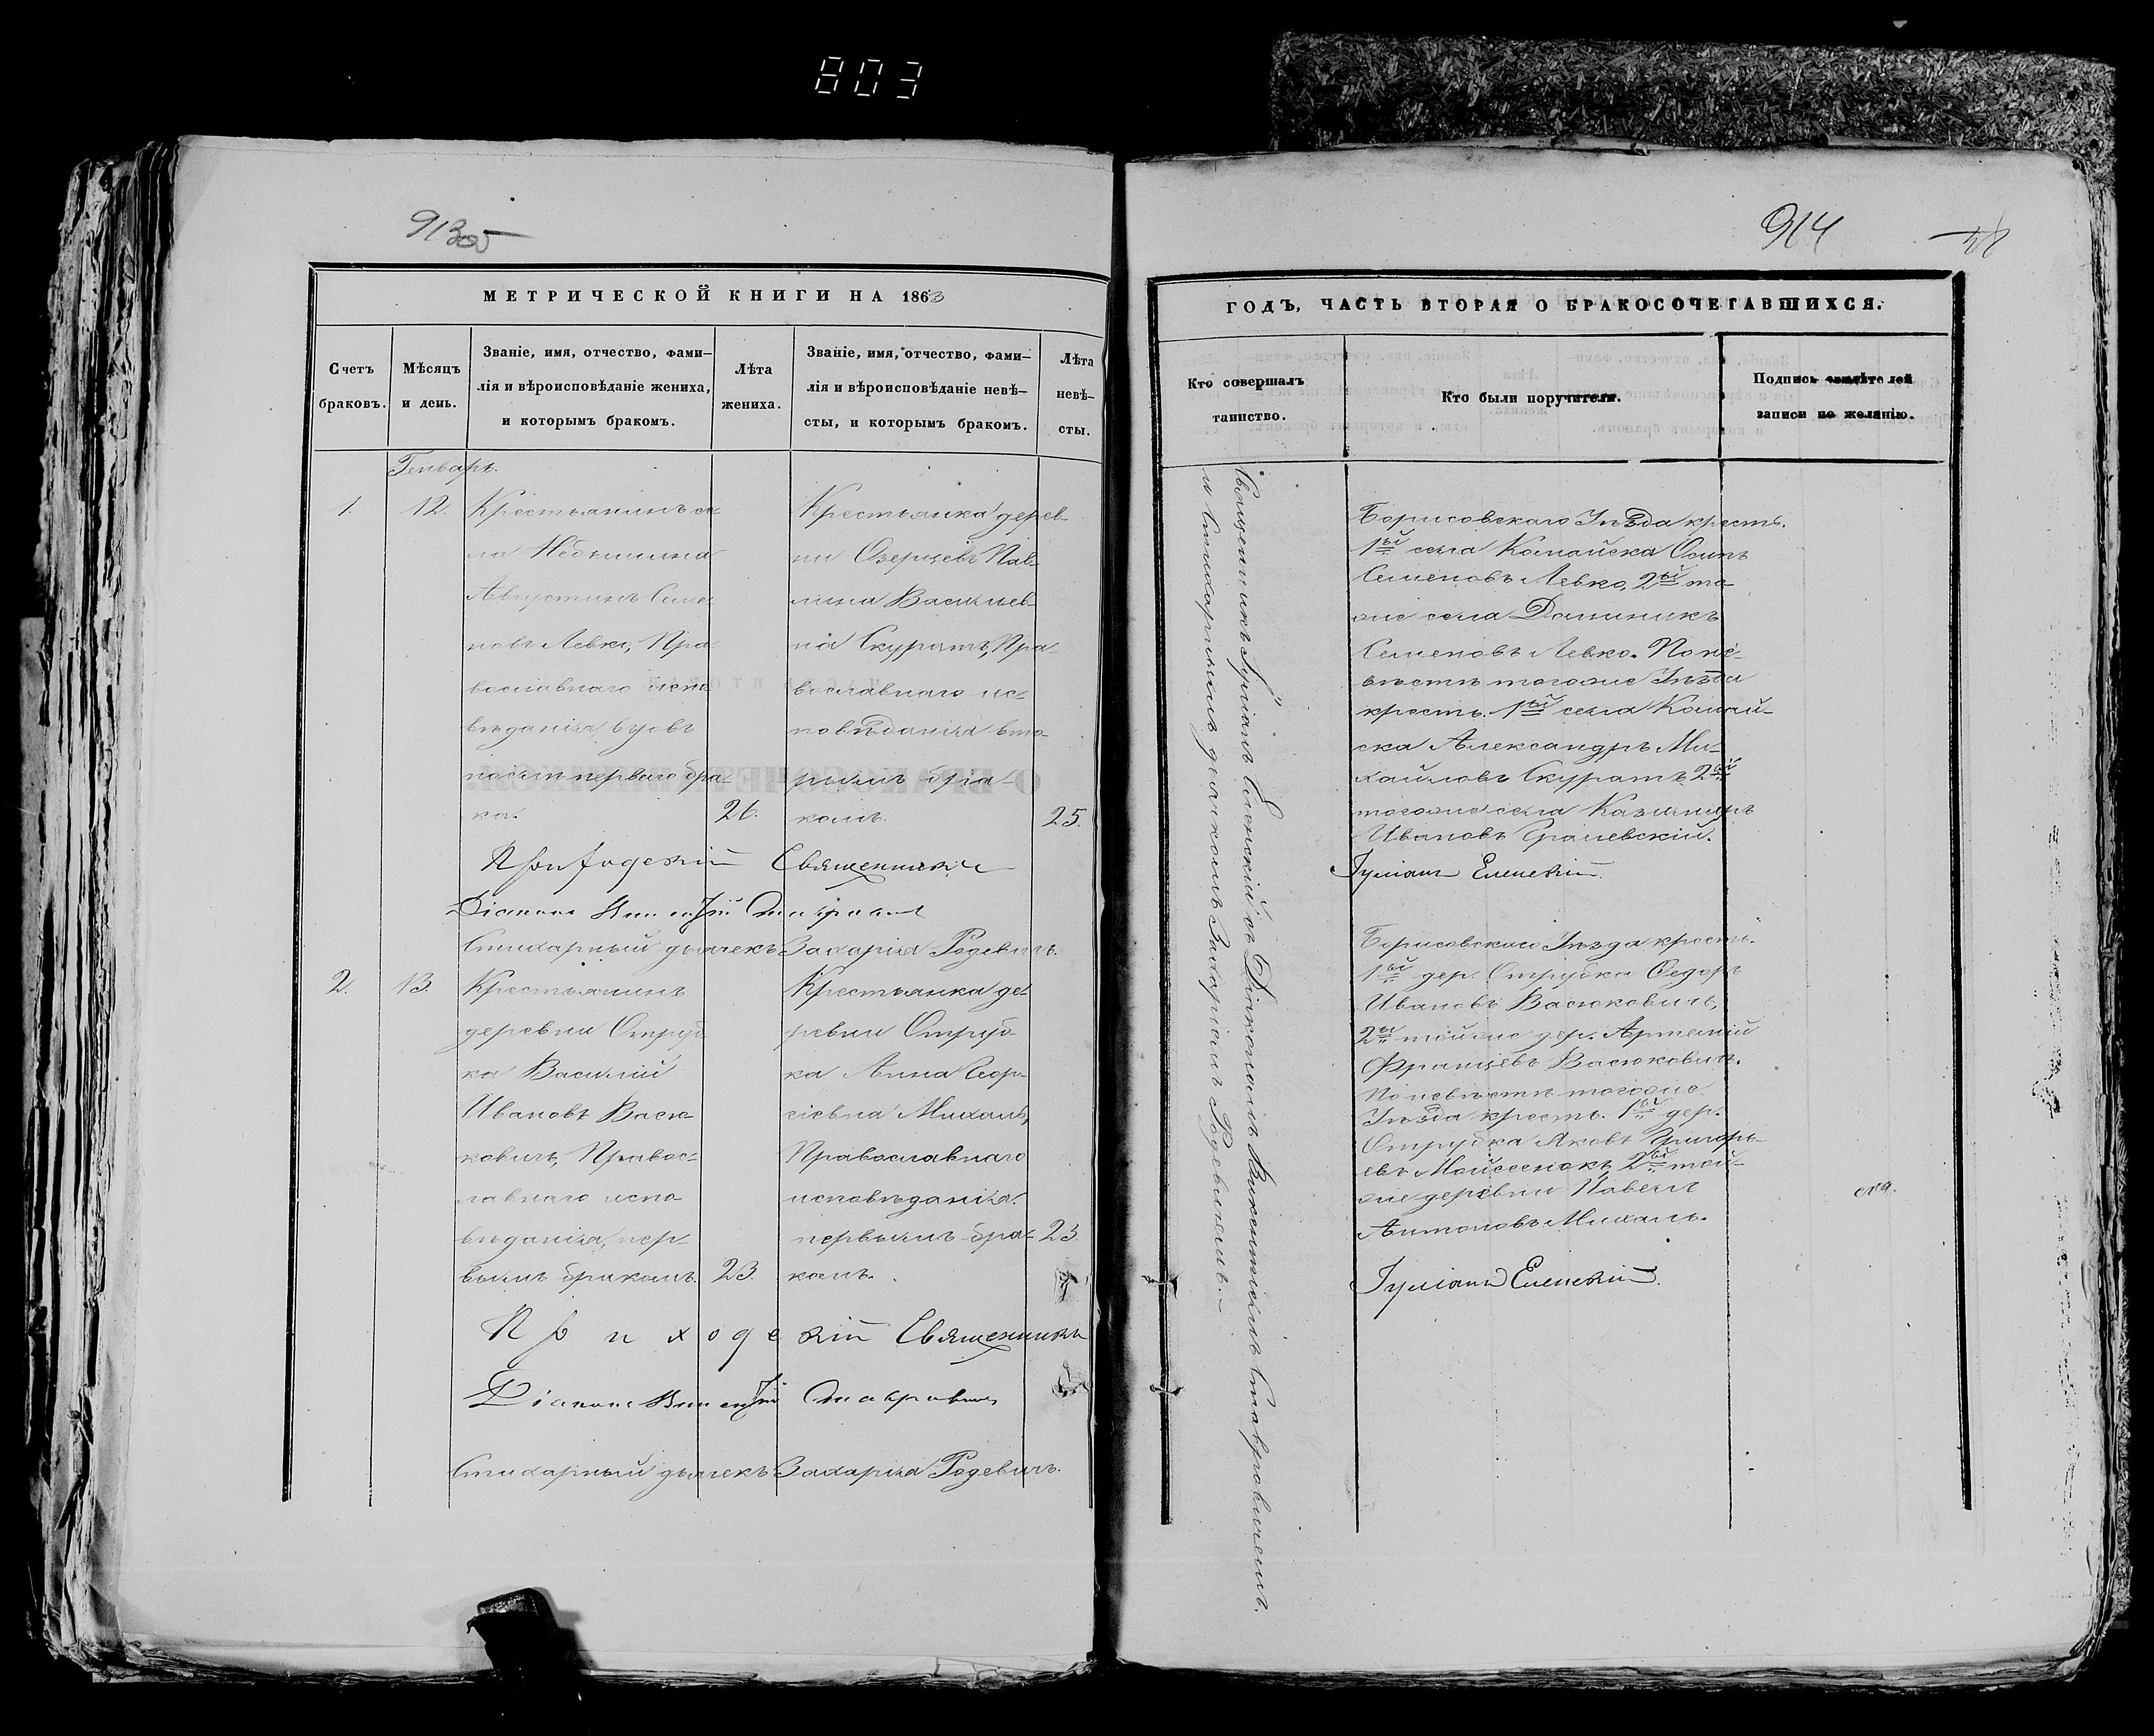 803
913
914
МЕТРИЧЕСКОЙ КНИГИ НА 1863
Счетъ
браковъ.
Мѣсяцъ
и день.
Званіе, имя, отчество, фами-
лія и вѣроисповѣданіе жениха,
и которымъ бракомъ.
Лѣта
жениха.
Званіе, имя, отчество, фами-
лія и вѣроисповѣданіе невѣ-
сты, и которымъ бракомъ.
Лѣта
невѣ-
сты.
Генварь.
1.
12.
Крестьянинъ се-
ла
Августинъ Семе-
новъ Левко, Пра-
вославнаго испо-
вѣданія, вдовъ
послѣ перваго бра-
ка.
26.
Крестьянка дерев-
ни Озерцевъ Пав-
лина Васильев-
на Скуратъ, Пра-
вославнаго ис-
повѣданія вто-
рымъ бра-
комъ.
25.
Приходскій Священникъ
Діаконъ Викентій
Стихарный дьячекъ Захарія Родевичъ.
2.
13.
Крестьянинъ
деревни Отруб-
ка Василій
Ивановъ Васю-
ковичъ, Правос-
лавнаго испо-
вѣданія, пер-
вымъ бракомъ.
23.
Крестьянка де-
ревни Отруб-
ка Анна Геор-
гіевна Михаль,
Православнаго
исповѣданія
первымъ бра-
комъ.
23.
Приходскій Священникъ
Діаконъ Викентій
Стихарный дьячекъ Захарія Родевичъ.
ГОДЪ, ЧАСТЬ ВТОРАЯ О БРАКОСОЧЕТАВШИХСЯ.
Кто совершалъ
таинство.
Кто были поручители.
Подпись свидѣтелей
записи по желанію.
Священникъ Іуліанъ Еленскій съ Діакономъ Викентіемъ Ставровичемъ
и Стихарнымъ дьячкомъ Захаріемъ Родевичемъ.
Борисовскаго Уѣзда крестъ.
1ый села Комайска Осипъ
Семеновъ Левко, 2ый то-
же села Доминикъ
Семеновъ Левко. По не-
вѣстѣ тогоже Уѣзда
крестъ. 1ый села Комай-
ска Александръ Ми-
хайловъ Скуратъ 2ый
тогоже села Казимиръ
Ивановъ
Іуліанъ Еленскій.
Борисовскаго Уѣзда крестъ.
1ый дер. Отрубка Федоръ
Ивановъ Васюковичъ,
2ый тойже дер. Артемій
Францевъ Васюковичъ.
По невѣстѣ тогоже
Уѣзда крестъ. 1ый дер.
Отрубка Яковъ Григорь-
евъ Мойсеенокъ, 2ый той-
же деревни Павелъ
Антоновъ Михаль.
Іуліанъ Еленскій.